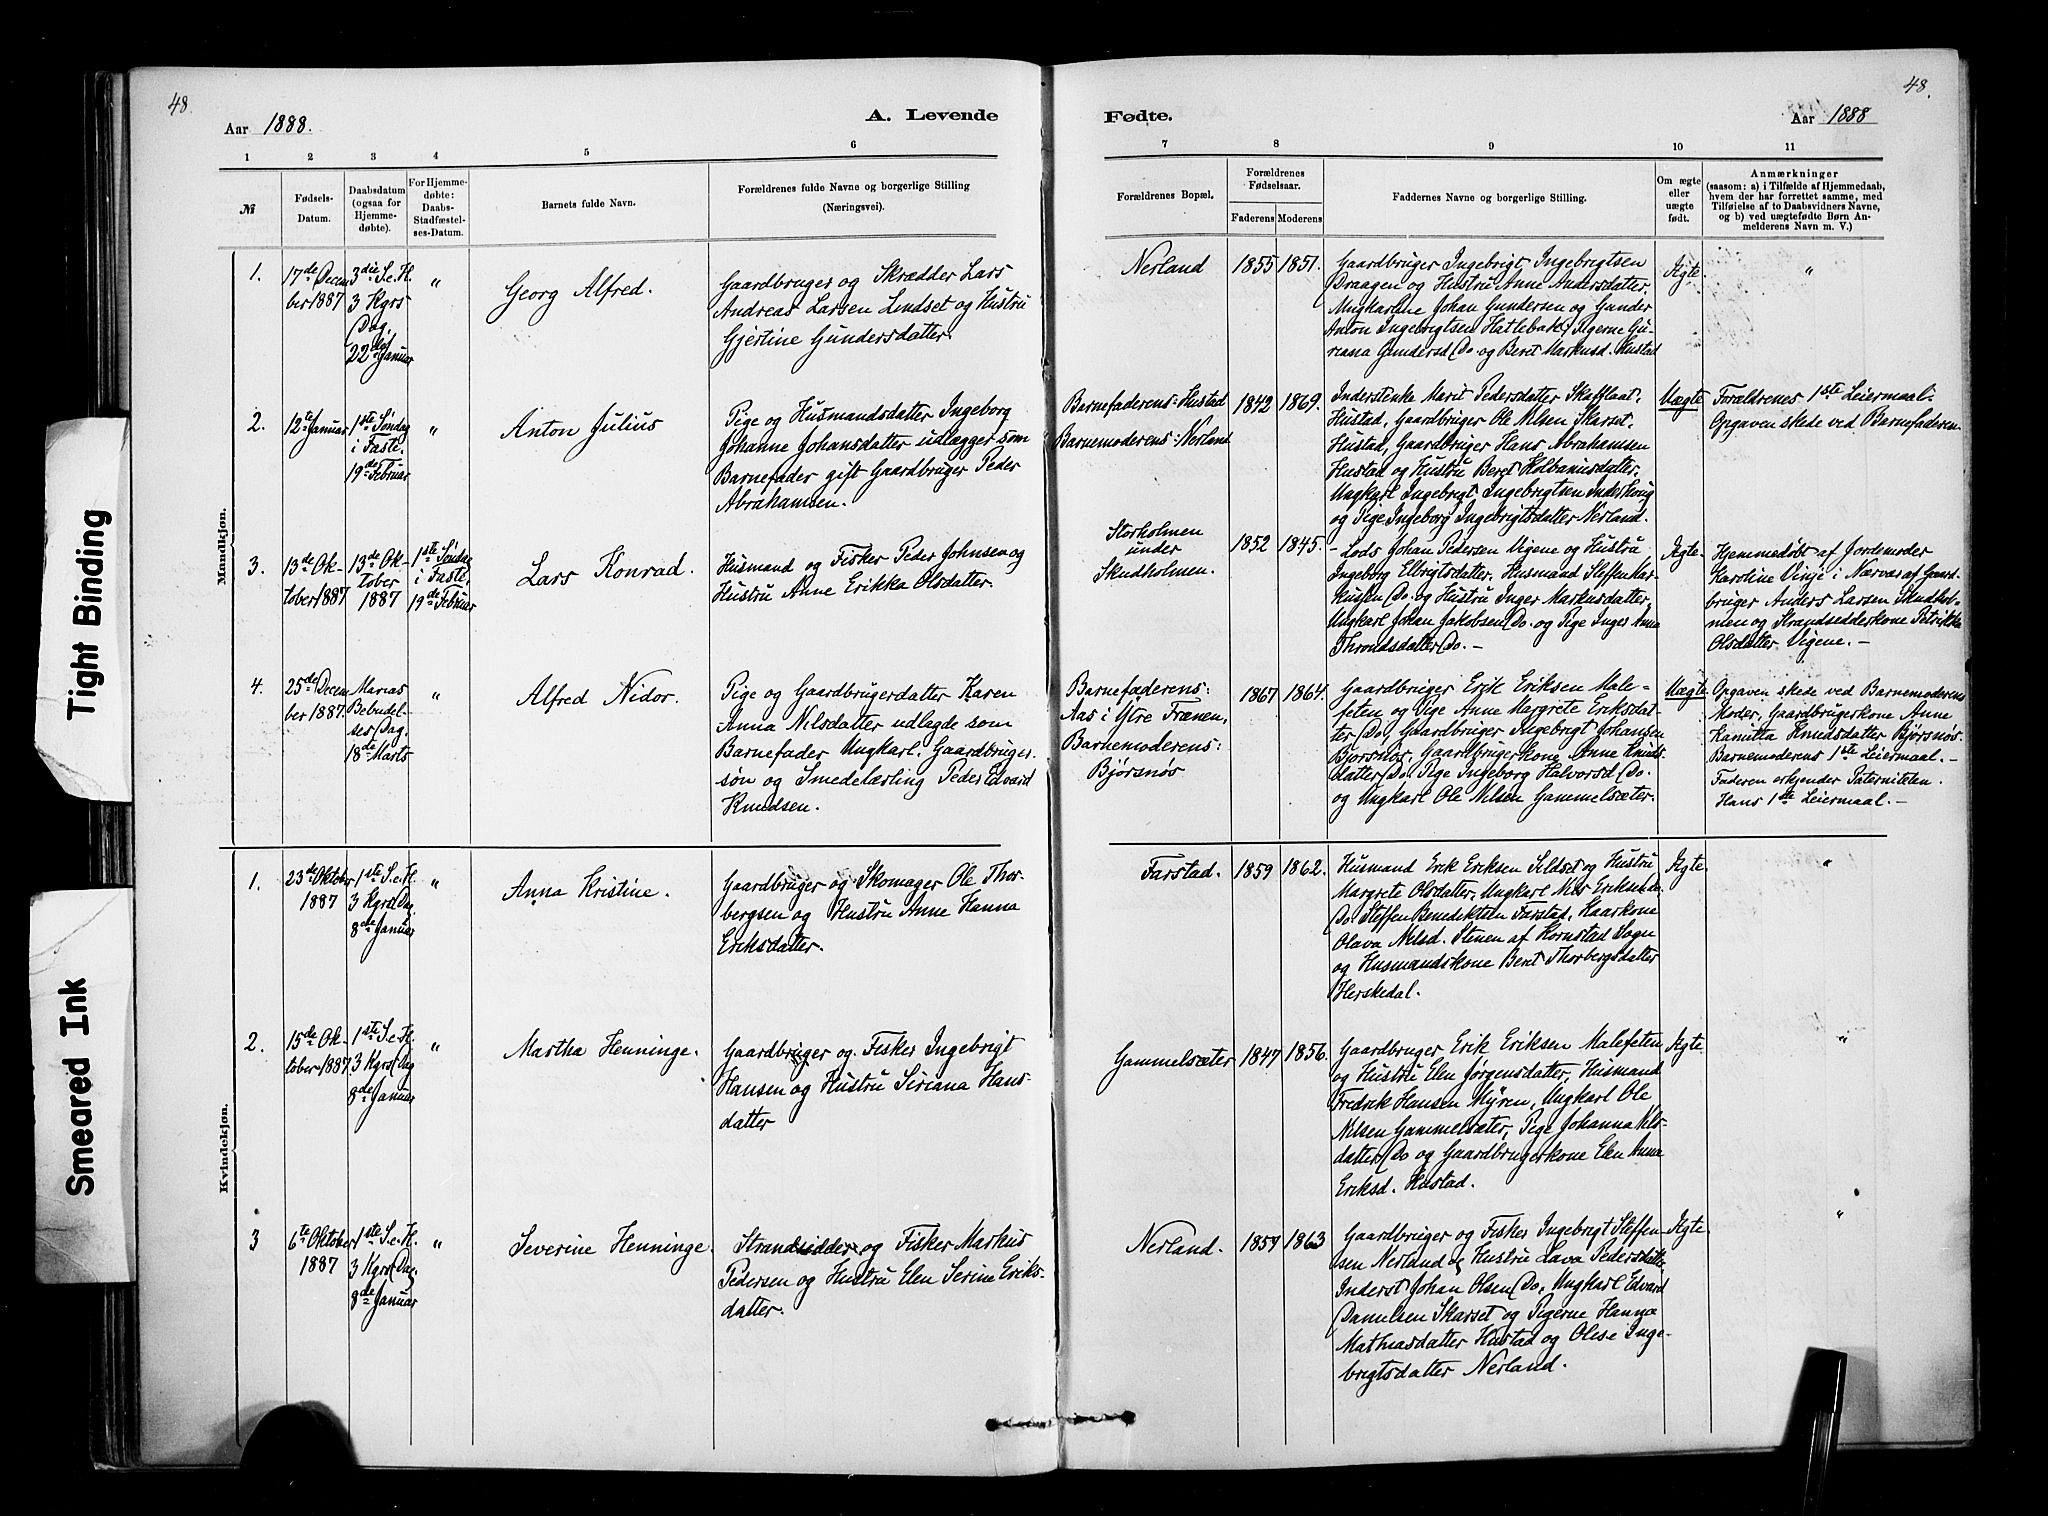 48.
Aar 1888.
A. Levende
1 2 3 4 5 6
№
Fødsels-
Datum.
Daabsdatum
(ogsaa for
Hjemme-
døbte).
For Hjemme-
døbte:
Daabs-
Stadfæstel-
ses-Datum.
Barnets fulde Navn.
Forældrenes fulde Navne og borgerlige Stilling
(Næringsvei).
Mandkjøn.
1.
17de Decem
ber 1887
3die S. e. H.
3 Kgrs
Dag,
22de Januar
"
Georg Alfred.
Gaardbruger og Skrædder Lars
Andreas Larsen Lindset og Hustru
Gjertine Gundersdatter.
2.
12te Januar
1ste Søndag
i Faste.
19de Februar
"
Anton Julius
Pige og Husmandsdatter Ingeborg
Johanne Johansdatter udlægger som
Barnefader gift Gaardbruger Peder
Abrahamsen.
3.
13de Ok-
tober 1887
13de Ok-
tober
1887
1ste Søndag
i Faste,
19de Februar
Lars Konrad.
Husmand og Fisker Peder Johnsen og
Hustru Anne Erikka Olsdatter.
4.
25de Decem
ber 1887.
Marias
Bebudel-
ses Dag.
18de Marts
"
Alfred Nidor.
Pige og Gaardbrugerdatter Karen
Anna Nilsdatter udlagde som
Barnefader Ungkarl, Gaardbruger-
søn og Smedelærling Peder Edvard
Knudsen.
Kvindekjøn.
1.
23de Oktober
1887
1ste S. e. H.
3 Kgrs Dag
8de Januar
"
Anna Kristine.
Gaardbruger og Skomager Ole Thor-
bergsen og Hustru Anne Hanna
Eriksdatter.
2.
15de Ok-
tober 1887
1ste S. e. H.
3 Kgrs Dag
8de Januar
"
Martha Henninge.
Gaardbruger og Fisker Ingebrigt
Hansen og Hustru Siriana Hans-
datter
3
6te Oktober
1887
1ste S. e. H.
3 Kgrs Dag.
8de Januar
"
Severine Henninge.
Strandsidder og Fisker Markus
Pedersen og Hustru Elen Serine Eriks-
datter.
48.
Fødte.
Aar 1888
7 8 9 10 11
Forældrenes Bopæl.
Forældrenes
Fødselsaar.
Faderens Moderens
Faddernes Navne og borgerlige Stilling.
Om ægte
eller
uægte
født.
Anmærkninger
(saasom: a) i Tilfælde af Hjemmedaab,
hvem der har forrettet samme, med
Tilføielse af to Daabsvidners Navne,
og b) ved uægtefødte Børn An-
melderens Navn m. V.)
Nerland
1855 1851.
Gaardbruger Ingebrigt Ingebrigtsen
Draagen og Hustru Anne Andersdatter.
Ungkarlene Johan Gundersen og Gunder
Anton Ingebrigtsen Hatlebak, Pigerne Gu-
riana Gundersd. Do. og Beret Markusd. Hustad
Ægte
"
Barnefaderens: Hustad
Barnemoderens: Nerland
1842 1869.
Inderstenke Marit Pedersdatter Skaflaat.
Hustad, Gaardbruger Ole Nilsen Skarset.
Hustad, Gaardbruger Hans Abrahamsen
Hustad og Hustru Beret Kolbanusdatter.
Ungkarl Ingebrigt Ingebrigtsen Inderhoug
og Pige Ingeborg Ingebrigtsdatter Nerland.
Uægte
Forældrenes 1ste Leiermaal.
Opgaven skede ved Barnefaderen
Storholmen
under
Skudholmen.
1852 1845.
Lods Johan Pedersen Vigene og Hustru
Ingeborg Elbrigtsdatter. Husmand Steffen Mar-
kussen Do. og Hustru Inger Markusdatter,
Ungkarl Johan Jakobsen Do. og Pige Inger Anna
Throndsdatter Do. —
Ægte.
Hjemmedøbt af Jordemoder
Karoline Vinje i Nærvær af Gaard-
bruger Anders Larsen Skudhol-
men og Strandsidderkone Petrikka
Olsdatter Vigene. —
Barnefaderens:
Aas i Ytre Frænen,
Barnemoderens:
Bjørsnøs
1867 1864.
Gaardbruger Erik Eriksen Male-
feten og Pige Anne Margrete Eriksdat-
ter Do, Gaardbruger Ingebrigt Johansen
Bjørsnøs. Gaardbrugerkone Anne Knuds-
datter Do. Pige Ingeborg Halvorsd. Do.
og Ungkarl Ole Nilsen Gammelsæter.
Uægte
Opgaven skede ved Barnemoderens
Moder, Gaardbrugerkone Anne
Kanutta Knudsdatter Bjørsnøs.
Barnemoderens 1ste Leiermaal. —
Faderen erkjender Paterniteten.
Hans 1ste Leiermaal. —
Farstad.
1859 1862.
Husmand Erik Eriksen Sildset og Hustru
Margrete Olsdatter, Ungkarl Nils Eriksen
Do. Steffen Benediktsen Farstad, Kaarkone
Olava Nilsd. Stenen af Kornstad Sogn
og Husmandskone Beret Thorbergsdatter
Herskedal.
Ægte.
"
Gammelsæter
1847 1856.
Gaardbruger Erik Eriksen Malefeten
og Hustru Elen Jørgensdatter, Husmand
Fredrik Hansen Myren, Ungkarl Ole
Nilsen Gammelsæter, Pige Johanna Nils-
datter Do og Gaardbrugerkone Elen Anna
Eriksd. Hustad.
Ægte
"
Nerland.
1859 1863
Gaardbruger og Fisker Ingebrigt Steffen-
sen Nerland og Hustru Lava Pedersdatter
Inderst Johan Olsen Do, Ungkarl Edvard
Danielsen Skarset og Pigerne Hanna
Mathiasdatter Hustad og Olise Inge-
brigtsdatter Nerland.
Ægte.
"
Tight Binding
Smeared Ink